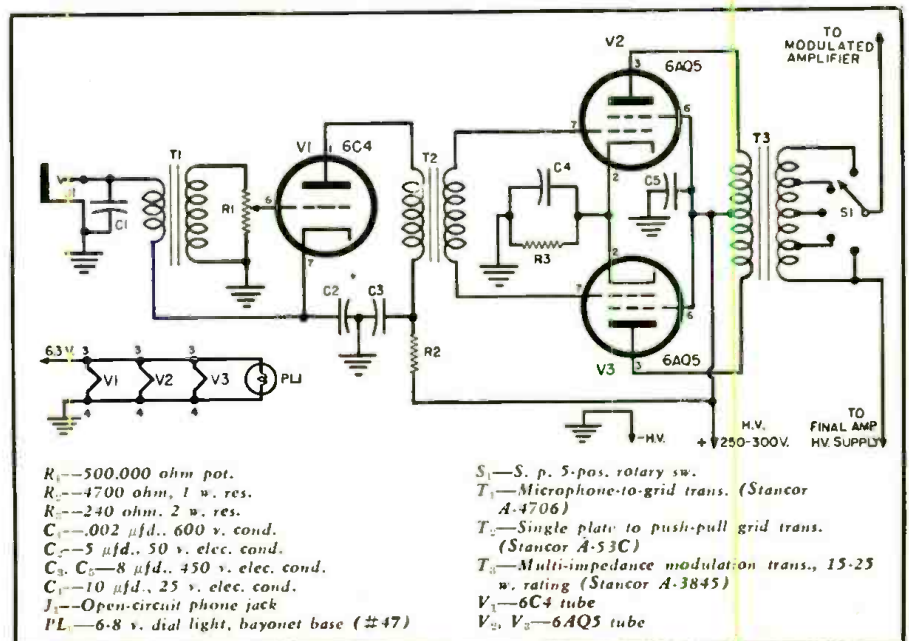 TO
MODULATED
AMPLIFIER
V2
6AQ5
3
6
7
2
T1
C1
R1
V1
6C4
1
6
7
T2
C4
R3
C5
T3
S1
C2
C3
R2
2
7
6
3
6AQ5
V3
6.3 V.
3
3
3
V1
V2
V3
PL1
4
4
4
-H.V.
H.V.
+ 250-300V.
TO
FINAL AMP
H.V. SUPPLY
R1—500,000 ohm pot.
R2—4700 ohm, 1 w. res.
R3—240 ohm, 2 w. res.
C1—.002 μfd., 600 v. cond.
C2—5 μfd., 50 v. elec. cond.
C3, C5—8 μfd., 450 v. elec. cond.
C4—10 μfd., 25 v. elec. cond.
J1—Open-circuit phone jack
PL1—6-8 v. dial light, bayonet base (#47)
S1—S. p. 5-pos. rotary sw.
T1—Microphone-to-grid trans. (Stancor
A-4706)
T2—Single plate to push-pull grid trans.
(Stancor A-53C)
T3—Multi-impedance modulation trans., 15-25
w. rating (Stancor A-3845)
V1—6C4 tube
V2, V3—6AQ5 tube